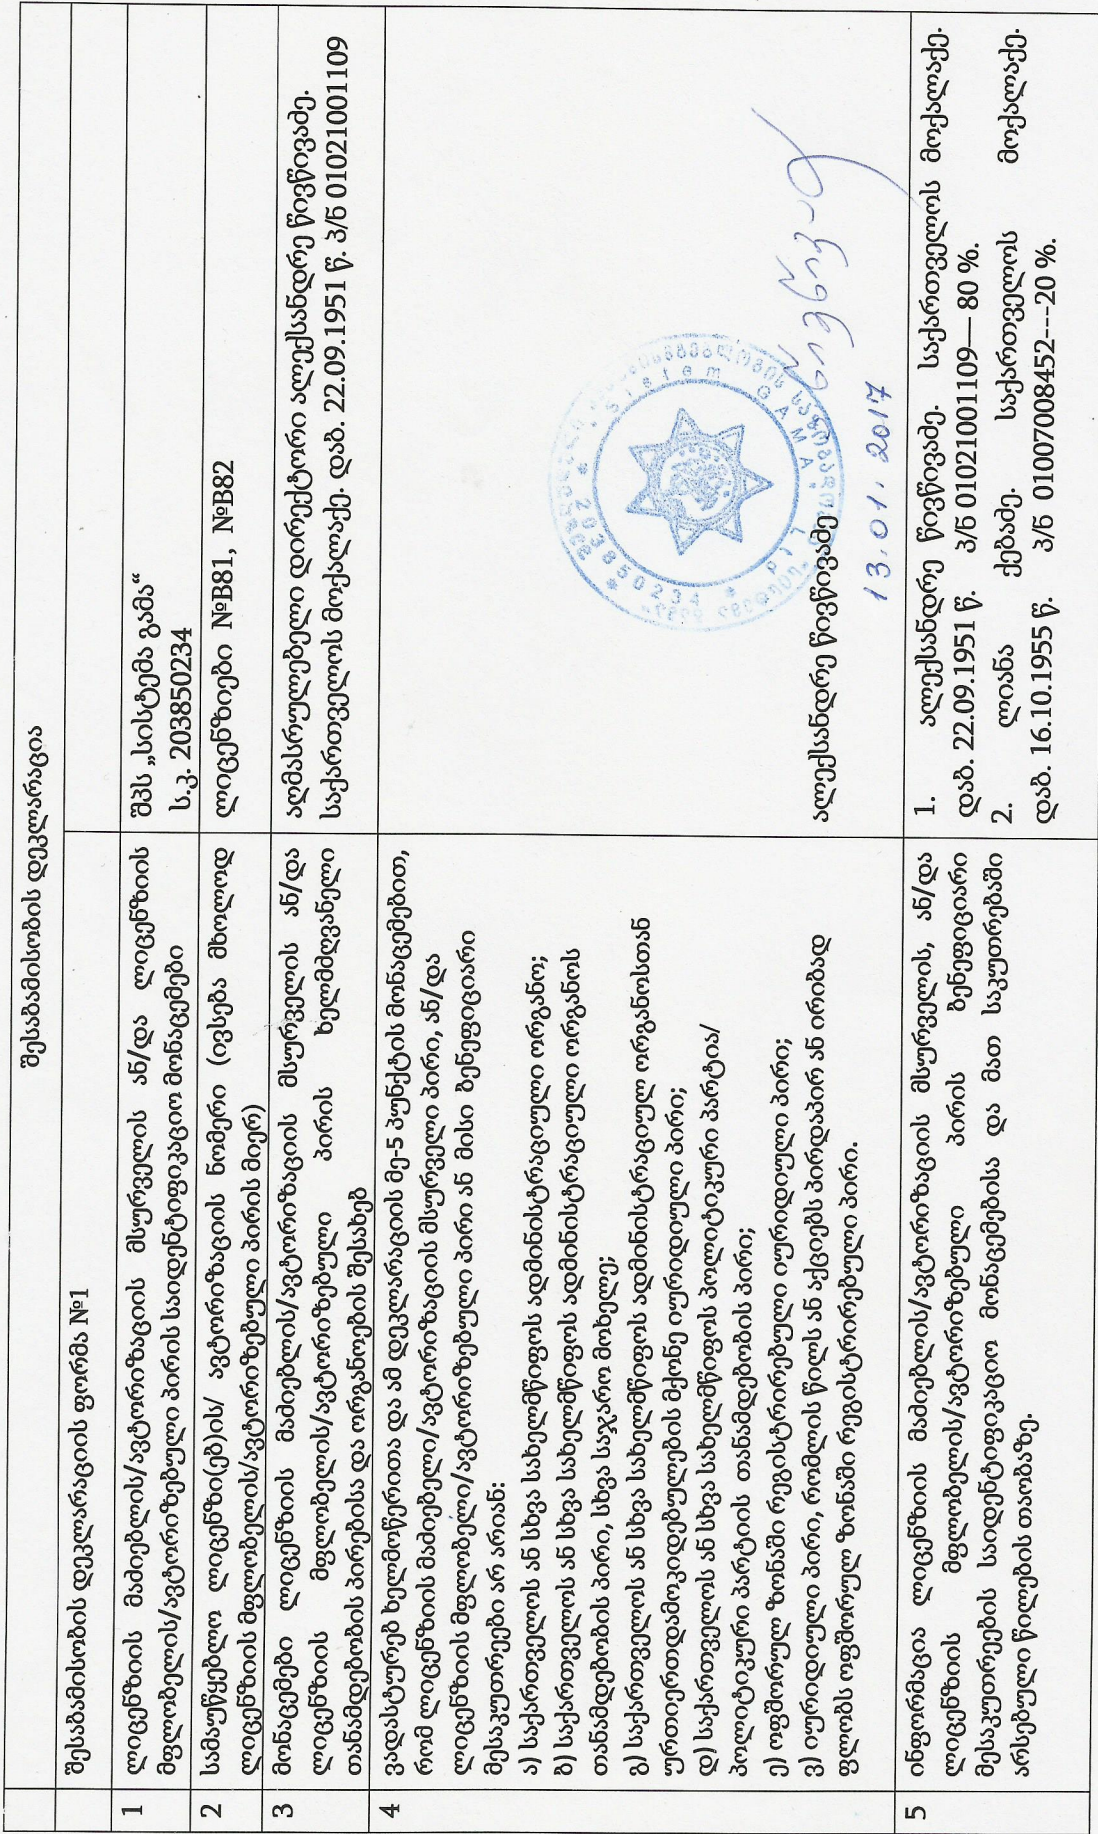 შესაბამისობის დეკლარაცია
შესაბამისობის დეკლარაციის ფორმა №1
1
ლიცენზიის მაძიებლის/ავტორიზაციის მსურველის ან/და ლიცენზიის
მფლობელის/ავტორიზებული პირის საიდენტიფიკაციო მონაცემები
შპს „სისტემა გამა“
ს.კ. 203850234
2
სამაუწყებლო ლიცენზი(ებ)ის/ ავტორიზაციის ნომერი (ივსება მხოლოდ
ლიცენზიის მფლობელის/ავტორიზებული პირის მიერ)
ლიცენზიები №B81, №B82
3
მონაცემები ლიცენზიის მაძიებლის/ავტორიზაციის მსურველის ან/და
ლიცენზიის მფლობელის/ავტორიზებული პირის ხელმძღვანელი
თანამდებობის პირებისა და ორგანოების შესახებ
აღმასრულებელი დირექტორი ალექსანდრე წივწივაძე.
საქართველოს მოქალაქე. დაბ. 22.09.1951 წ. პ/ნ 01021001109
4
ვადასტურებ ხელმოწერითა და ამ დეკლარაციის მე-5 პუნქტის მონაცემებით,
რომ ლიცენზიის მაძიებელი/ავტორიზაციის მსურველი პირი, ან/და
ლიცენზიის მფლობელი/ავტორიზებული პირი ან მისი ბენეფიციარი
მესაკუთრეები არ არიან:
ა) საქართველოს ან სხვა სახელმწიფოს ადმინისტრაციული ორგანო;
ბ) საქართველოს ან სხვა სახელმწიფოს ადმინისტრაციული ორგანოს
თანამდებობის პირი, სხვა საჯარო მოხელე;
გ) საქართველოს ან სხვა სახელმწიფოს ადმინისტრაციულ ორგანოსთან
ურთიერთდამოკიდებულების მქონე იურიდიული პირი;
დ) საქართველოს ან სხვა სახელმწიფოს პოლიტიკური პარტია/
პოლიტიკური პარტიის თანამდებობის პირი;
ე) ოფშორულ ზონაში რეგისტრირებული იურიდიული პირი;
ვ) იურიდიული პირი, რომლის წილს ან აქციებს პირდაპირ ან ირიბად
ფლობს ოფშორულ ზონაში რეგისტრირებული პირი.
ალექსანდრე წივწივაძე
13.01.2017
Sistem GAMA
203850234
5
ინფორმაცია ლიცენზიის მაძიებლის/ავტორიზაციის მსურველის, ან/და
ლიცენზიის მფლობელის/ავტორიზებული პირის ბენეფიციარი
მესაკუთრეების საიდენტიფიკაციო მონაცემებისა და მათ საკუთრებაში
არსებული წილების თაობაზე.
1. ალექსანდრე წივწივაძე. საქართველოს მოქალაქე.
დაბ. 22.09.1951 წ. პ/ნ 01021001109— 80 %.
2. ლიანა ქებაძე. საქართველოს მოქალაქე.
დაბ. 16.10.1955 წ. პ/ნ 01007008452---20 %.